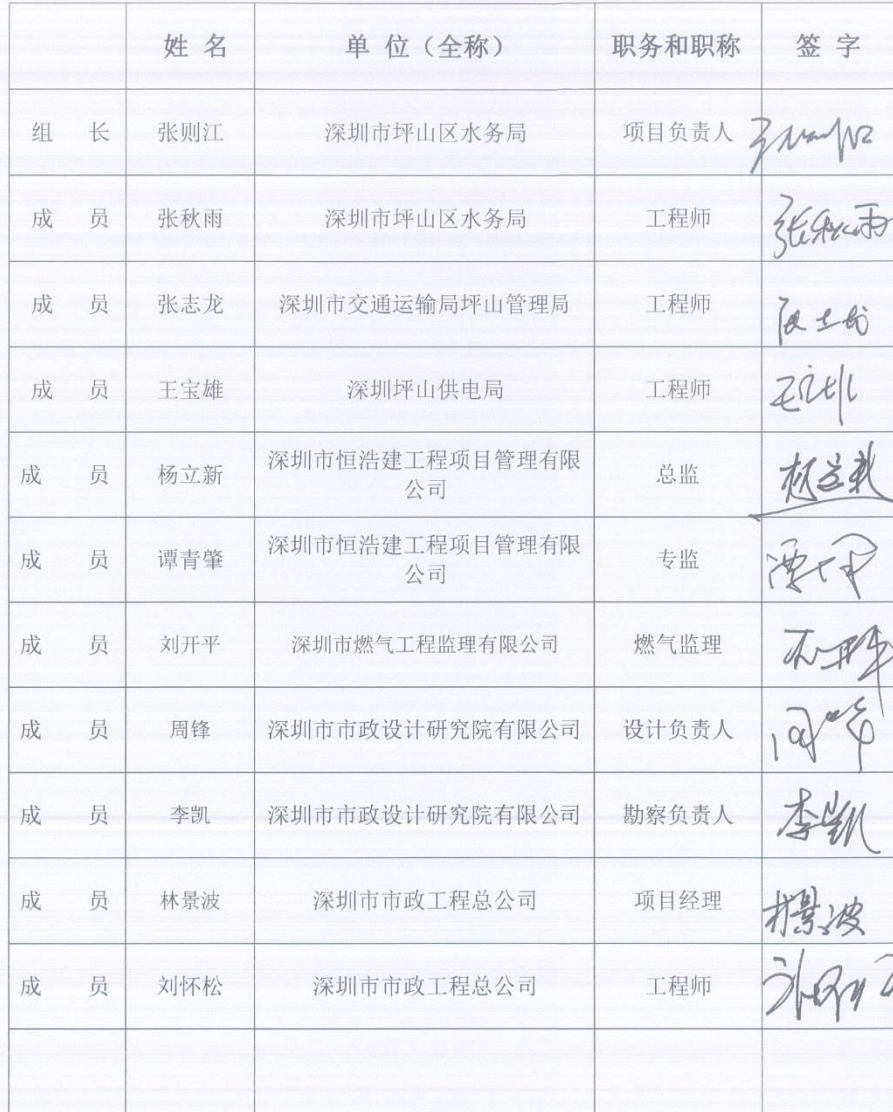 姓 名 单 位（全称） 职务和职称 签 字
组 长 张则江 深圳市坪山区水务局 项目负责人
成 员 张秋雨 深圳市坪山区水务局 工程师 张秋雨
成 员 张志龙 深圳市交通运输局坪山管理局 工程师
成 员 王宝雄 深圳坪山供电局 工程师
成 员 杨立新 深圳市恒浩建工程项目管理有限
公司 总监 杨立新
成 员 谭青肇 深圳市恒浩建工程项目管理有限
公司 专监
成 员 刘开平 深圳市燃气工程监理有限公司 燃气监理
成 员 周锋 深圳市市政设计研究院有限公司 设计负责人 周锋
成 员 李凯 深圳市市政设计研究院有限公司 勘察负责人 李凯
成 员 林景波 深圳市市政工程总公司 项目经理 林景波
成 员 刘怀松 深圳市市政工程总公司 工程师